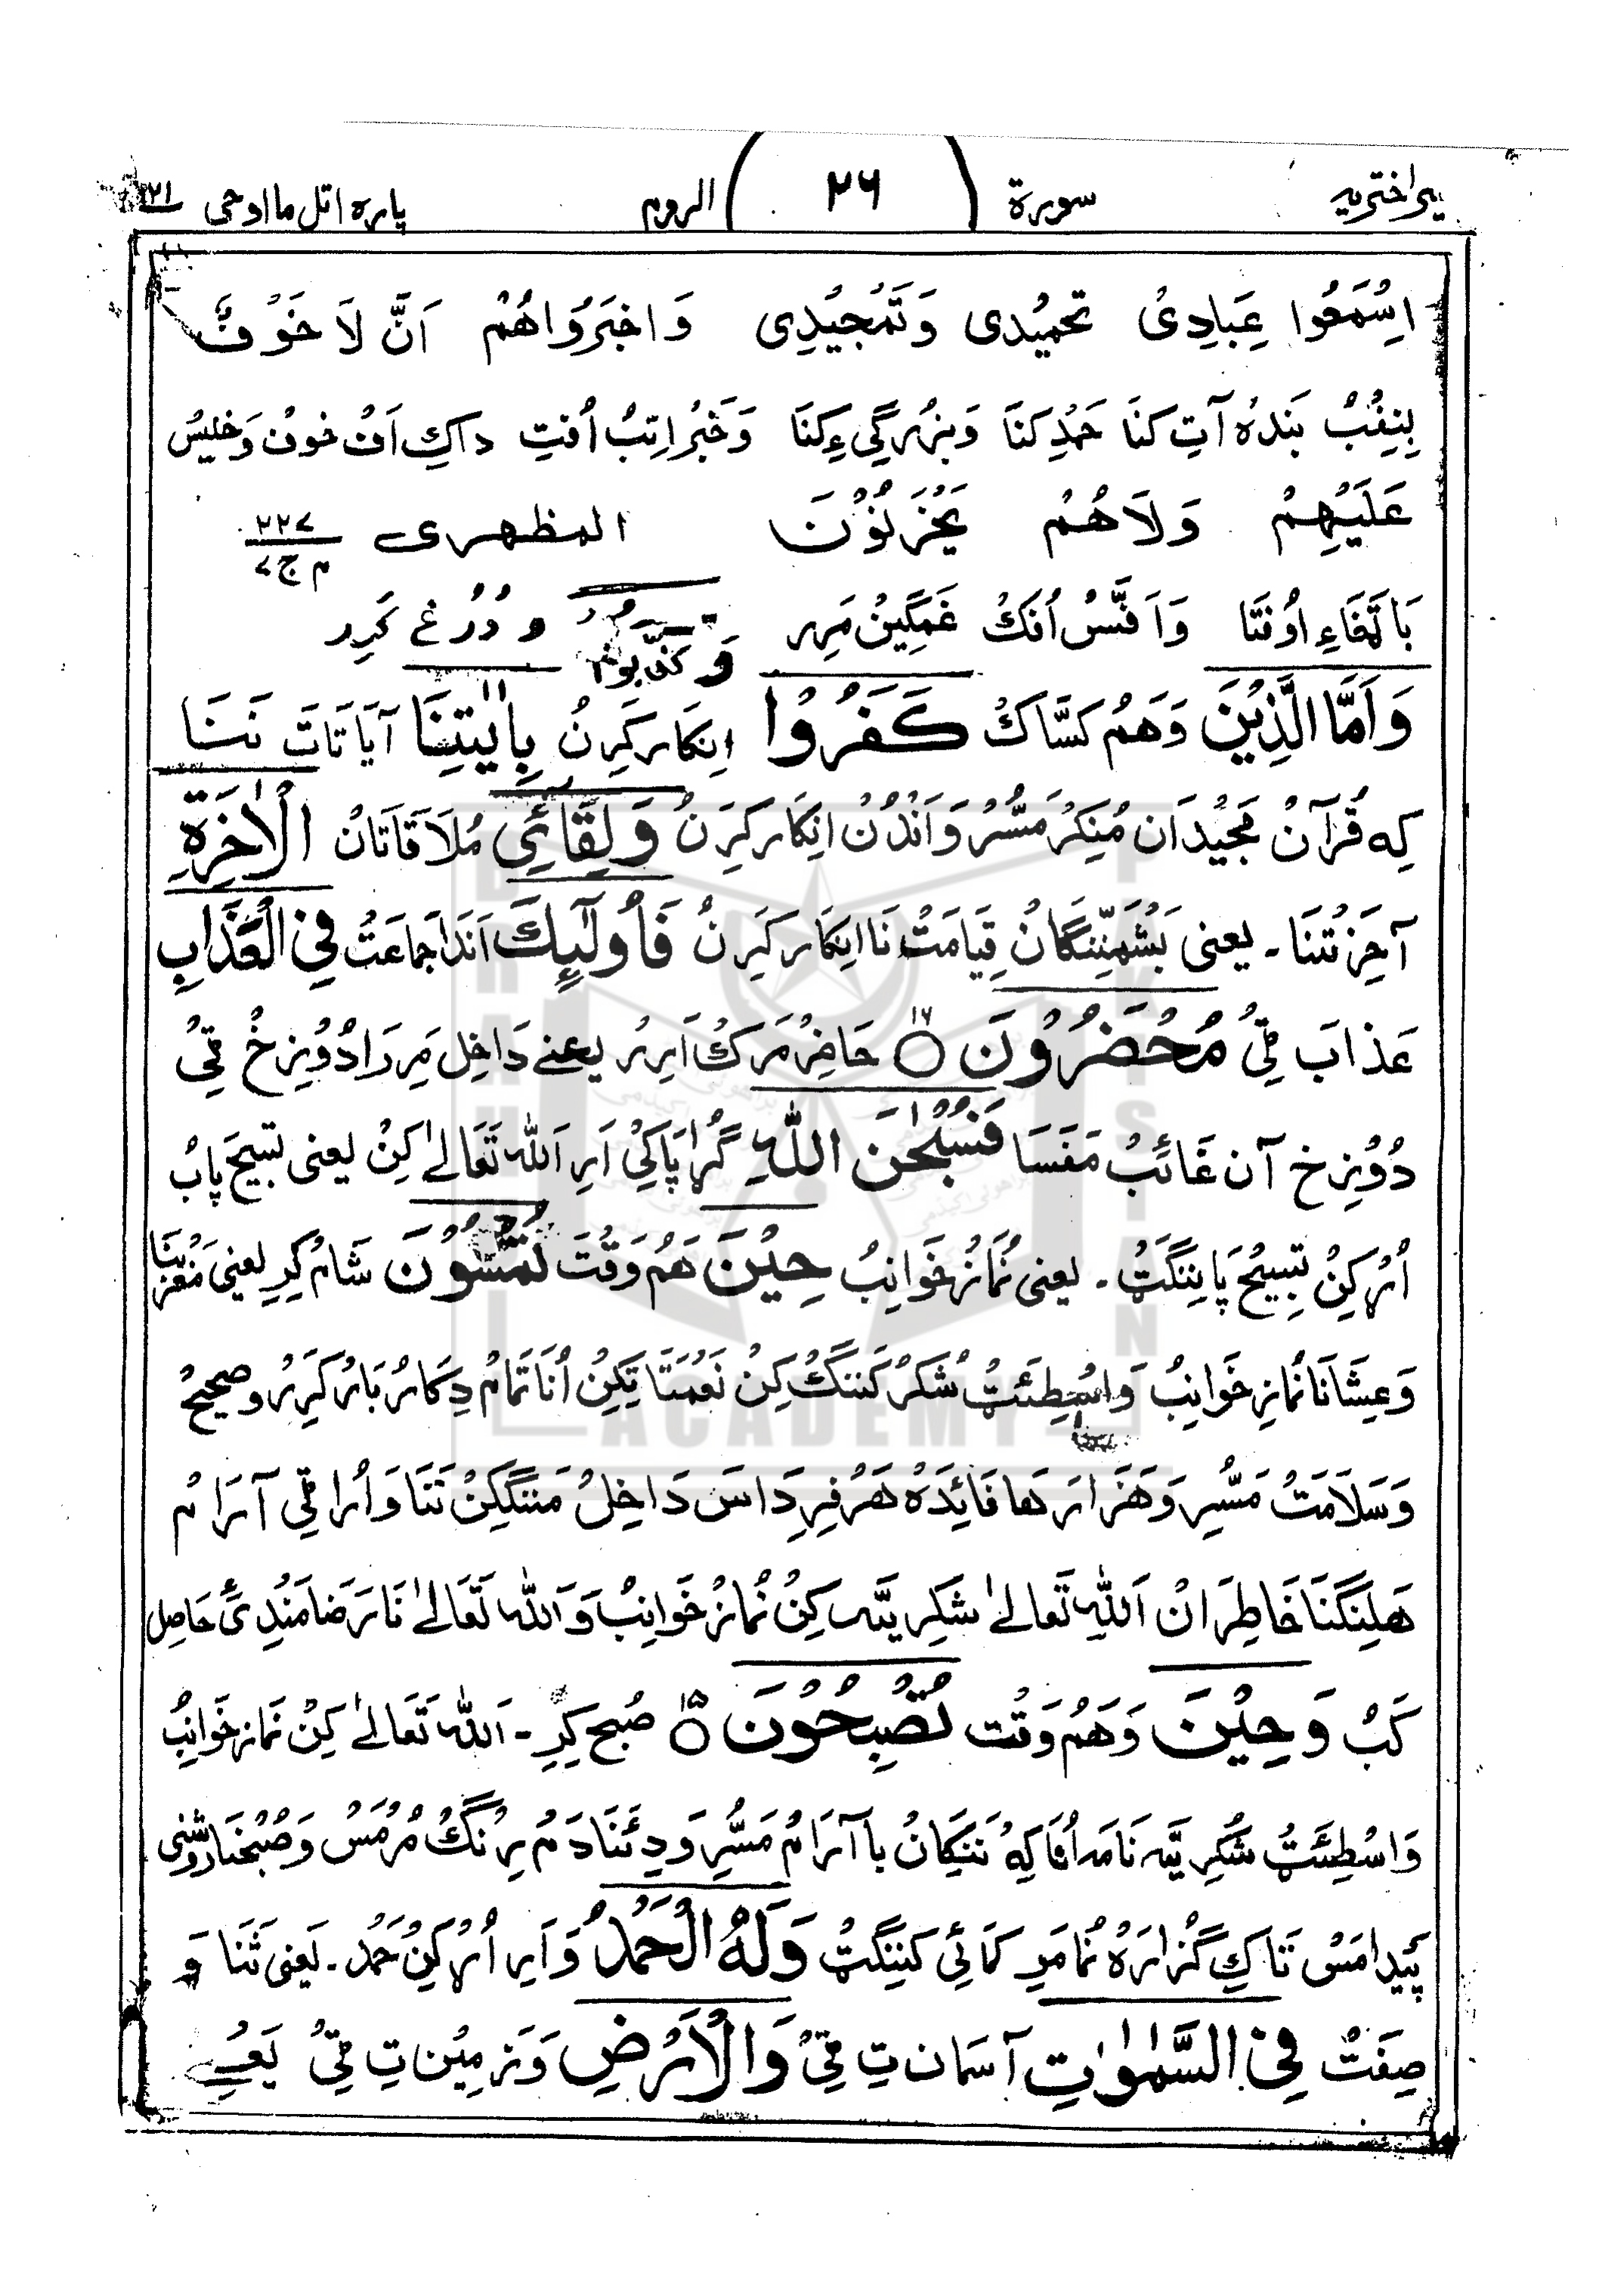 یراختریہ سورة (۲۶) الروم پاره اتل ما اوحی ۲۱
اِسْمَعُوا عِبَادِیْ تحمیْدی وَتَمْجِیْدِی وَاخبَرُوْاهُمْ اَنَّ لَا خَوْفٌ
بِنِفِبْ بَنده آتِ کنَا حَمْدِ کنَا وَبزرگیءِ کنَا وَخَبْرْ اِتِبْ اُفتِ داکِ اَف خوف وَخلیسْ
عَلَیْهِمْ وَلَاهُمْ یَحْزَنُوْنَ المظهری ۲۲۷ م ج ۷
بَا تَهَاءِ اوْنَتَا وَاَفَّسْ اُفکْ غَمگِیْنْ مَرِر وَکَذَّبُوْا و دُرُغْ کَرِر
وَاَمَّا الَّذِیْنَ وَهَمْ کَسَّاکْ کَفَرُوْا اِنکَار کَرِنْ بِاٰیٰتِنَا آیَا تَاتَ نَنَا
کِه قُرآنْ مَجِیْدَان مُنکِرْ مَسُّرْ وَاَنْدُنْ اِنکَار کَرِنْ وَلِقَآئِ مُلَاقَاتَانْ الْاٰخِرَةِ
آخِرْتْنَا۔ یعنی بَشْمَنِنگانْ قِیَامَتْ نَا انِکَار کَرِنْ فَاُولٰٓئِکَ اَنْدَا جَماعَتْ فِی الْعَذَابِ
عَذابَ ٹِیْ مُحْضَرُوْنَ ۝۱۶ حَاضِرْ مَرکْ اَرِرْ یعنے دَاخِل مِررَا دُوْزِخْ ٹِیْ
دُوْزِخ آن غَائبْ مَفَسَا فَسُبْحٰنَ اللهِ گُڑَا پَاکِیْ اَرِ اَللّٰه تَعَالٰے کِنْ یعنی تسبیح پابْ
اُڑکِنْ تِسبِیْح پَاننگَٹْ۔ یعنی نُمَازْ خَوانِبْ حِیْنَ هَمْ وَقْتَ تُمْسُوْنَ شَامْ کِرِ یعنی مَغْرِبنَا
وَعِشَا نَا نُمازِ خَوانِبْ وَاسْطِئَٹْ شُکَرْ کَننگْ کِنْ نَعْمَتَا تَکِنْ اُنَا تَمَامْ دِ کَارْ بَارْ کَرِرْ وصحیحْ
وَسَلَامَتْ مَسُّرِ وَهَزَارَ هَا فَائِدَه هَرْفِرِ دَاسَ دَاخِلْ مَننگَکِنْ نَنَا وَاُرا ٹِی آرَامْ
هَلِنگَنَا خَاطِرَانْ اَللّٰهِ تَعالٰے شکر یّه کِنْ نُمَازْ خَوانِبْ وَاَللّٰه تَعَالٰے نَا رَضَا مَنْدِیْ حَاصِل
کَبْ وَحِیْنَ وَهَمْ وَقْت تُصْبِحُوْنَ ۝۱۷ صُبح کِرِ۔ اَللّٰه تَعَالٰے کِنْ نَماز خَوانِبْ
وَاسْطِئَٹْ شُکرِ یَّه نَا مَه اُفَا کِه نَنکَانْ با آرَامْ مَسُّرِ وَ دِئنَا دَمْ رِنگْ مْرمَسْ وَ صُبْحنَا رَوشنی
پَیدا مَسْ تَاکِ گُزارَه نُمامَرِ کَمَائِی کَننِگَٹْ وَلَهُ الْحَمْدُ وَاَرِ اُڑکِنْ حَمْد۔ یَعنی ثَنَا وَ
صِفَتْ فِی السَّمٰوٰتِ آسَمان تِ ٹِیْ وَالْاَرْضِ وَ زَمِیْن تِ ٹِیْ یَعنے